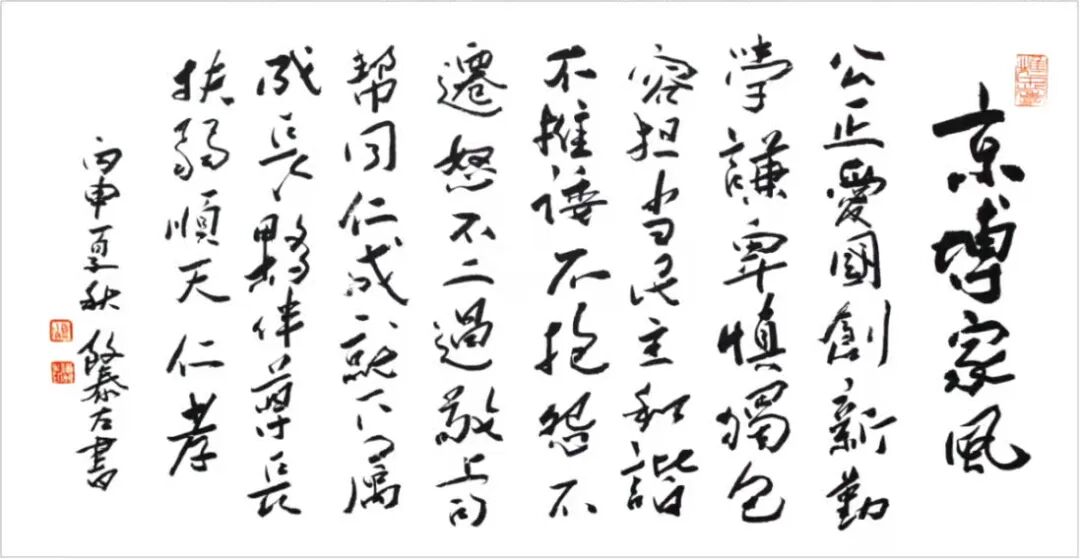 京博家風
公正愛國創新勤
學謙卑慎獨包
容担当民主和諧
不推诿不抱怨不
遷怒不二過敬上司
幫同仁成就下属
成長夥伴尊長
扶弱順天仁孝
丙申夏秋 泰左書